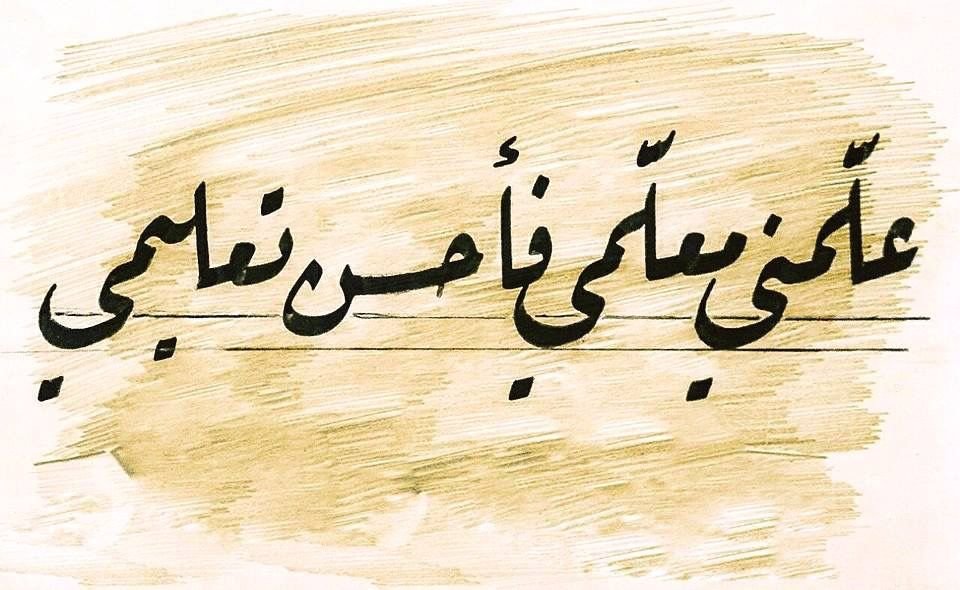 علّمني معلّمي فأحسن تعليمي